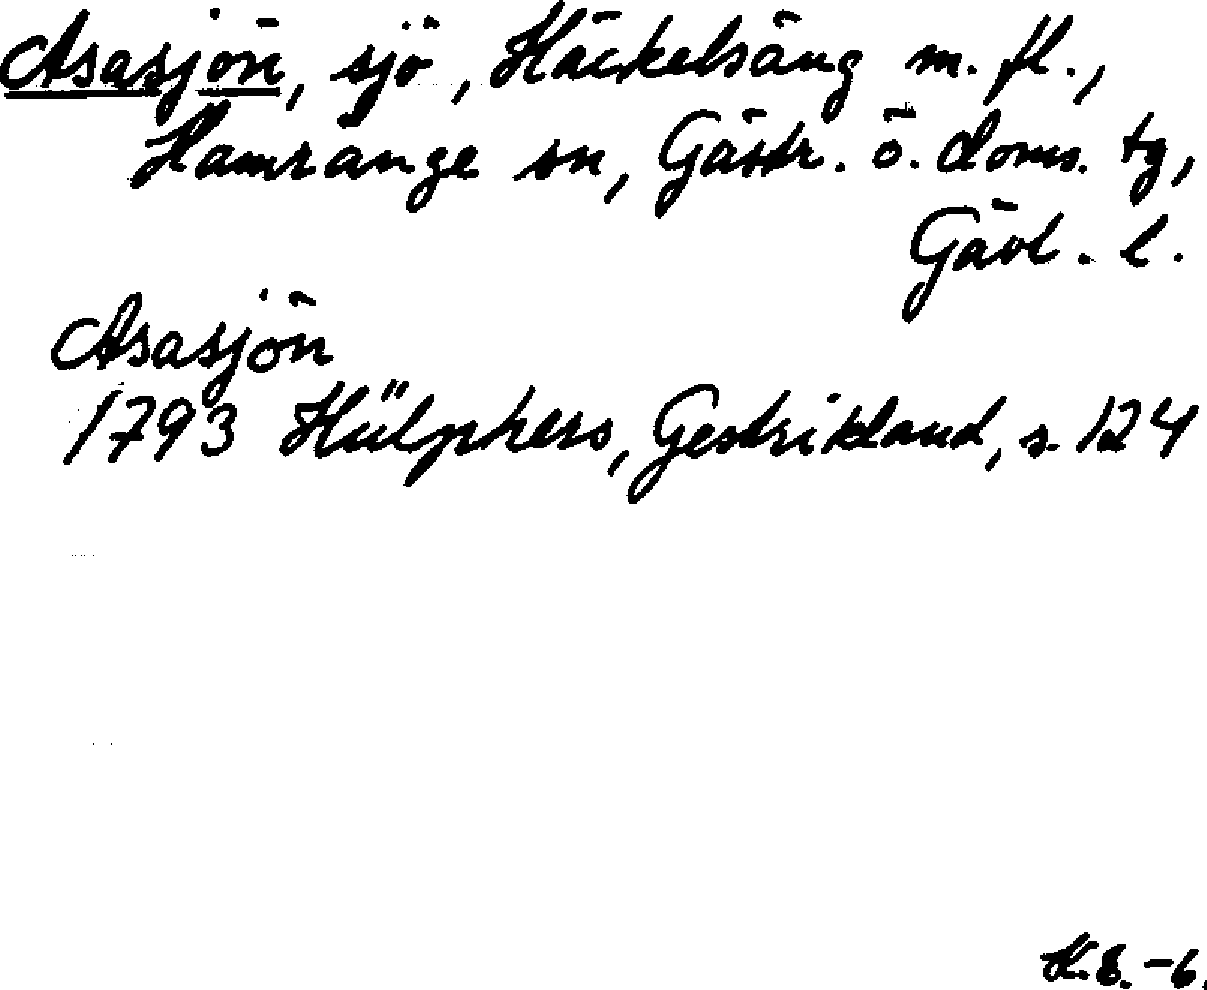 Asasjön, sjö, Häckelsäng m. fl.,
Hamrånge sn, Gästr. ö. doms. tg,
Gävl. l.
Asasjön
1793 Hülphers, Gestrikland, s. 124